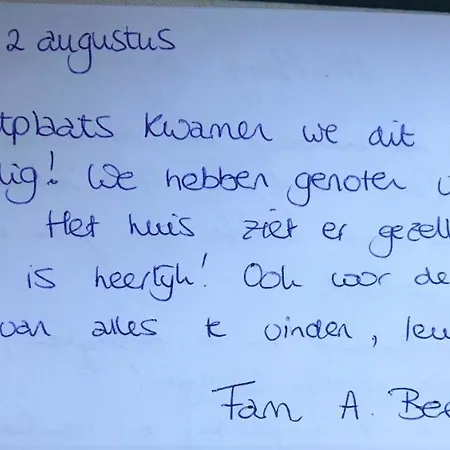 2 augustus
tplaats kwamen we dit
lig! We hebben genoten
Het huis ziet er gezell
is heerlijk! Ook voor de
van alles te vinden, leu
Fam A. Bee